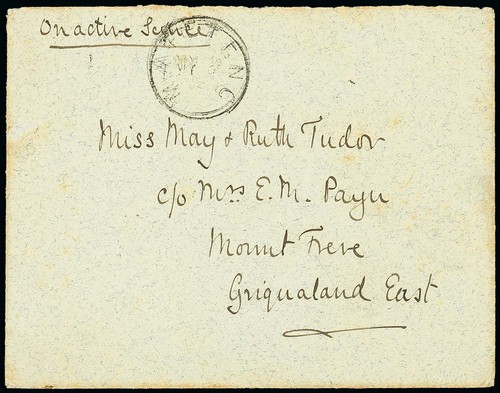 On active Service
MAFETENG
MY
Miss May & Ruth Tudor
c/o Mrs E. M. Payn
Mount Frere
Griqualand East